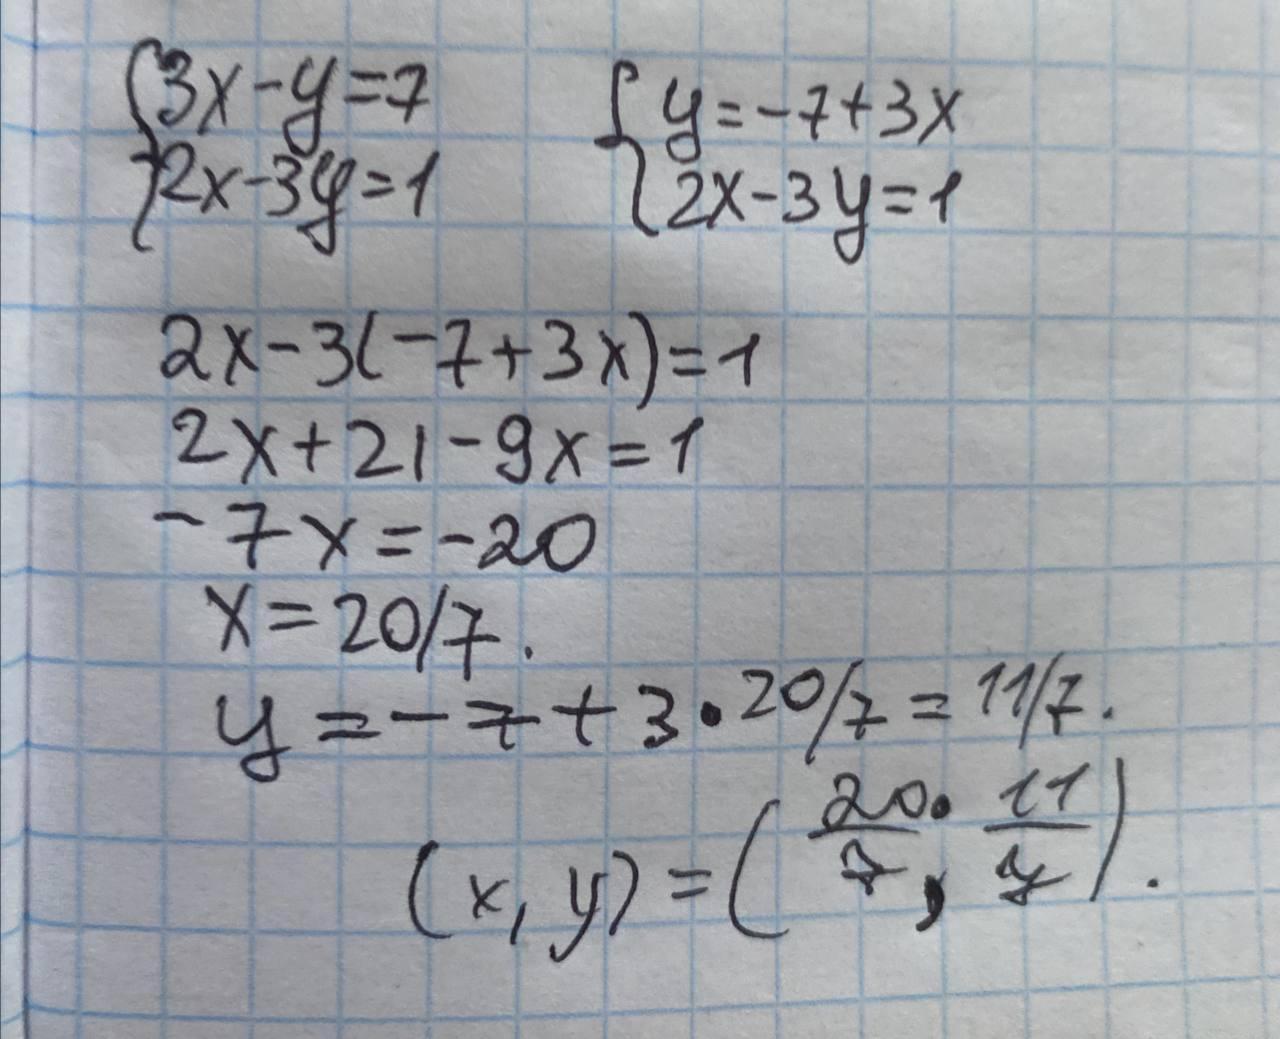 {3x-y=7 {y=-7+3x
2x-3y=1 2x-3y=1
2x-3(-7+3x)=1
2x+21-9x=1
-7x=-20
x=20/7.
y=-7+3•20/7=11/7.
(x,y)=(20/7, 11/7).